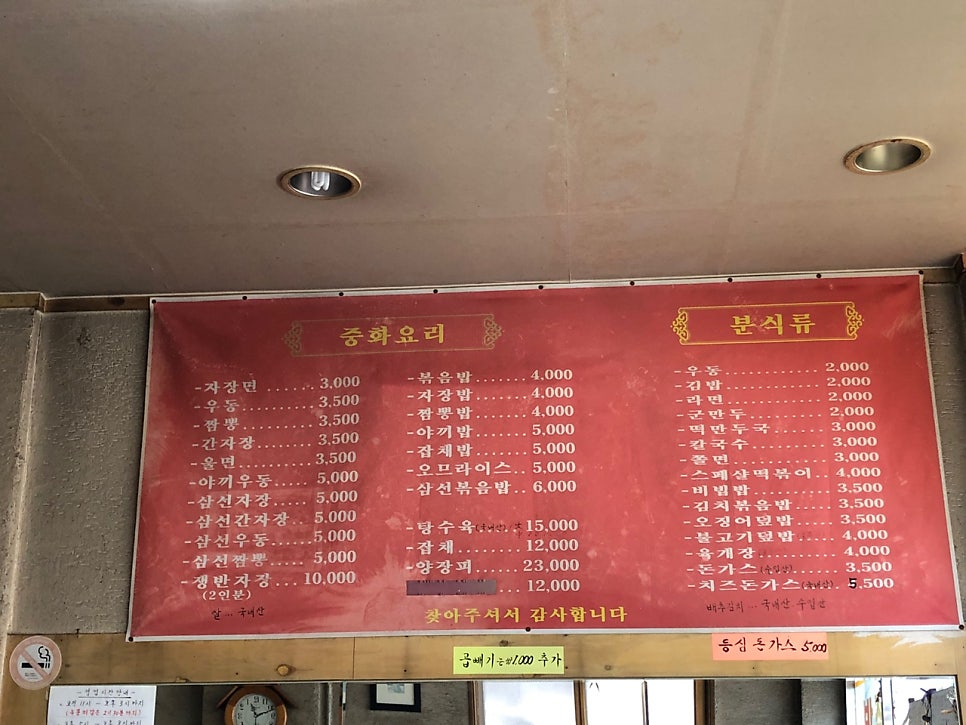 중화요리
-자장면 ....... 3,000
-우동 .......... 3,500
-짬뽕 .......... 3,500
-간자장 ....... 3,500
-울면 .......... 3,500
-야끼우동 .... 5,000
-삼선자장 .... 5,000
-삼선간자장 .. 5,000
-삼선우동 .... 5,000
-삼선짬뽕 .... 5,000
-쟁반자장 .... 10,000
(2인분)
쌀 ... 국내산
-볶음밥 ....... 4,000
-자장밥 ....... 4,000
-짬뽕밥 ....... 4,000
-야끼밥 ....... 5,000
-잡채밥 ....... 5,000
-오므라이스 .. 5,000
-삼선볶음밥 .. 6,000
-탕수육(국내산) 15,000
-잡채 .......... 12,000
-양장피 ....... 23,000
12,000
찾아주셔서 감사합니다
분식류
-우동 .......... 2,000
-김밥 .......... 2,000
-라면 .......... 2,000
-군만두 ....... 2,000
-떡만두국 .... 3,000
-칼국수 ....... 3,000
-쫄면 .......... 3,000
-스페샬떡볶이 .. 4,000
-비빔밥 ....... 3,500
-김치볶음밥 .. 3,500
-오징어덮밥 .. 3,500
-불고기덮밥 .. 4,000
-육개장 ....... 4,000
-돈가스(수입산) .... 3,500
-치즈돈가스(국내산) 5,500
배추김치 ... 국내산 수입산
곱빼기는 ₩1.000 추가
등심 돈가스 5000
-영업시간안내-